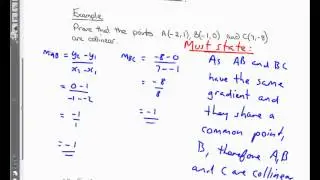 Example
Prove that the points A(-2,1), B(-1,0) and C(7,-8)
are collinear.
Must state:
m_AB = y2 - y1 / x2 - x1
= 0 - 1 / -1 - -2
= -1 / 1
= -1
m_BC = -8 - 0 / 7 - -1
= -8 / 8
= -1
As AB and BC
have the same
gradient and
they share a
common point,
B, therefore A,B
and C are collinear